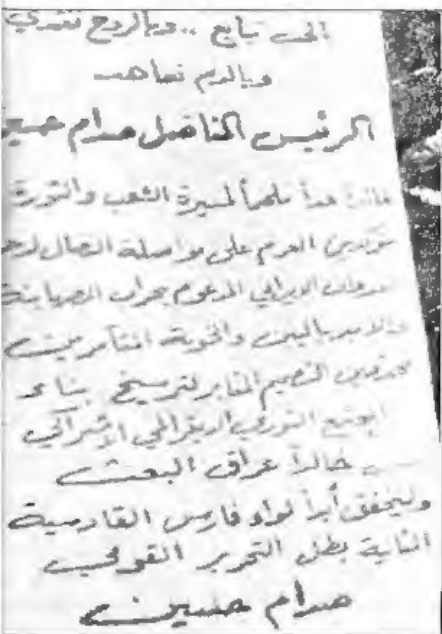 الحب نبايع .. وبالروح نفتدي
وبالدم نعاهد
الرئيس المناضل صدام حسين
قائداً فذاً ملهماً لمسيرة الشعب والثورة
مؤكدين العزم على مواصلة النضال لدحر
العدوان الايراني المدعوم بحراب الصهاينة
والامبرياليين والخونة المتآمرين
التصميم المثابر لترسيخ بناء
المجتمع الثوري الديمقراطي الاشتراكي
خالداً عراق البعث
وليخفق أبداً لواء فارس القادسية
الثانية بطل التحرير القومي
صدام حسين